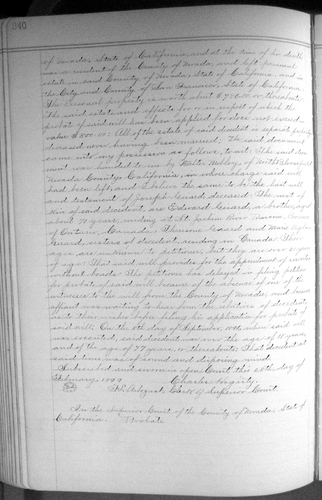 240
of Nevada, State of California, and at the time of his death
was a resident of the County of Nevada, and left personal
estate in said County of Nevada, State of California, and in
the City and County of San Francisco, State of California.
The personal property is worth about $ or thereabouts.
The said estate and effects for or in respect of which the
probate of said will has been applied for does not exceed
value $800.00. All of the estate of said decedent is separate property
deceased never having been married. The said document
came into my possession as follows, to wit: The said document
was handed to me by Walter Mobley, of North Bloomfield
Nevada County, California, in whose charge said will
had been left, and I believe the same to be the last will
and testament of Joseph Girard deceased. The next of
kin of said decedent, are Edward Girard, a brother, aged
about 71 years, residing at St. Province
of Ontario, Canada. Therese and Mary
Girard, sisters of decedent, residing in Canada. Their
ages are unknown to petitioner, but they are over the age
of age. That said will provides for the appointment of executor
without bonds. The petitioner has delayed in filing petition
for probate of said will because of the absence of one of the
witnesses to the will from the County of Nevada, and
affiant was waiting to hear from the sisters of decedent,
as to their wishes before filing his application for probate of
said will. On the 8th day of September, when said will
was executed, said decedent was over the age of 18 years
and of the age of 77 years or thereabouts; That decedent at
said time was of sound and disposing mind.
Subscribed and sworn in open Court this 28th day of
February 1899. Charles Hegarty.
Clerk of Superior Court.
In the Superior Court of the County of Nevada, State of
California. Probate.